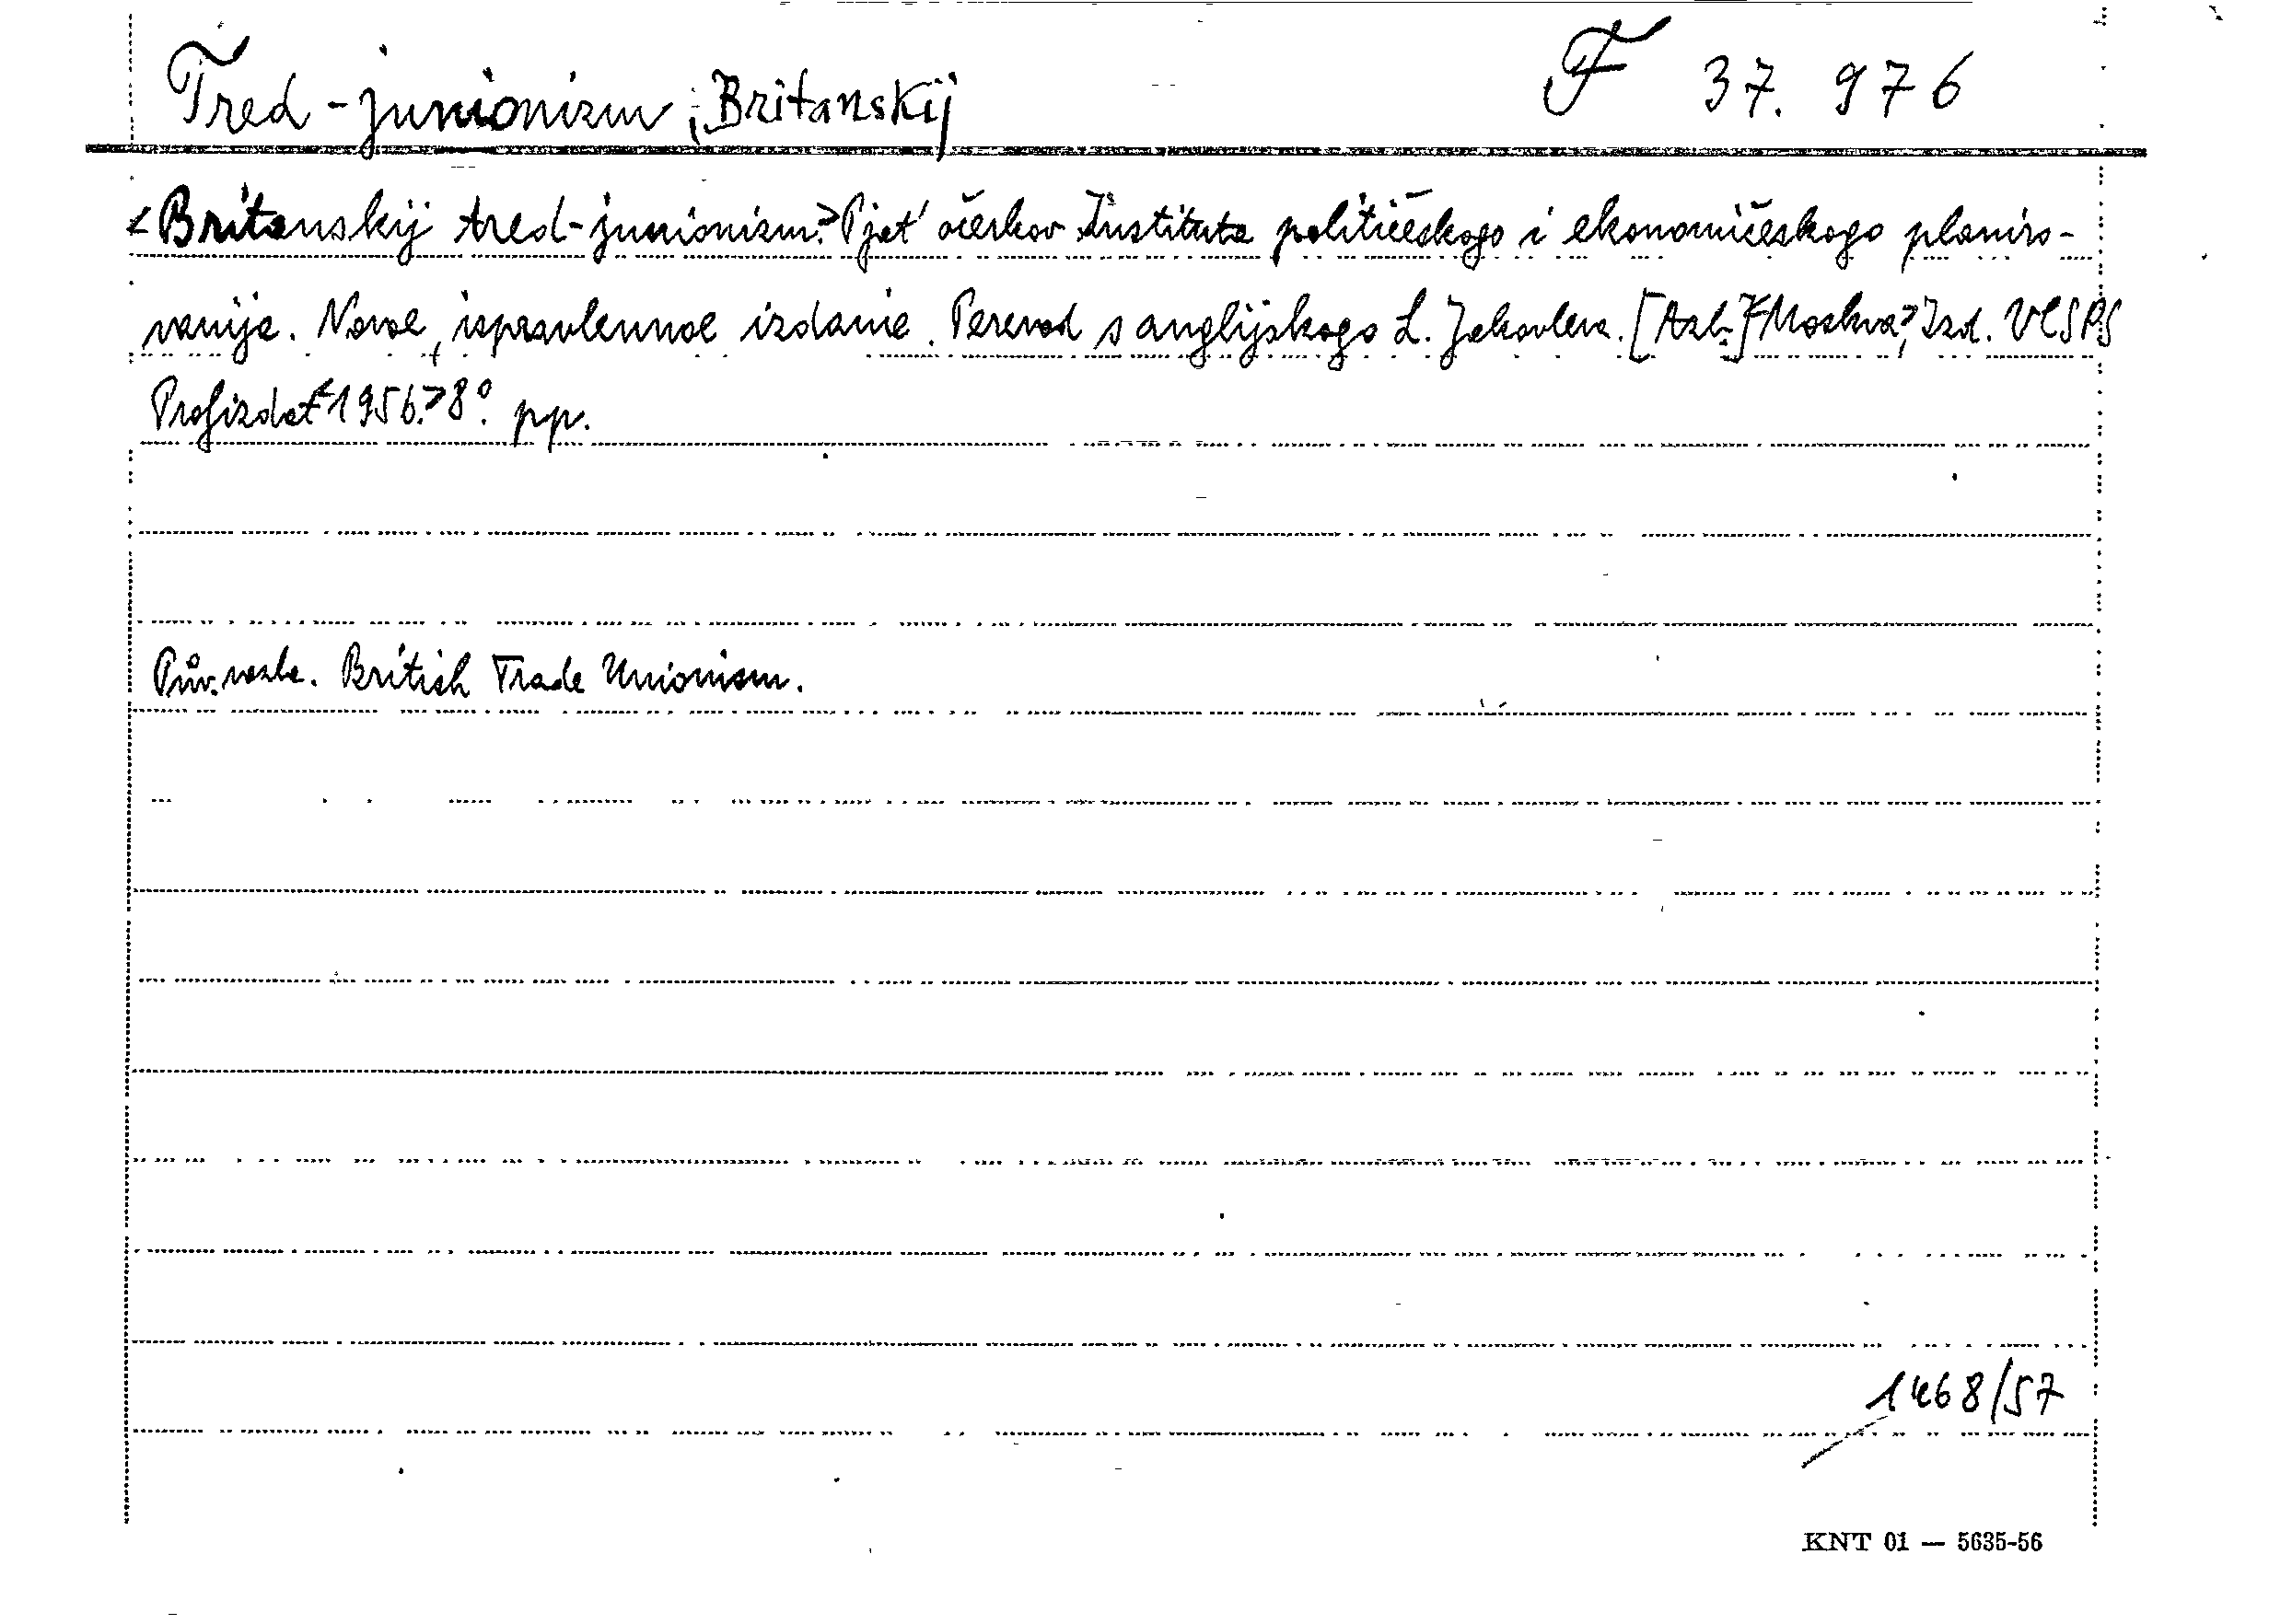 Tred-junionizm, Britanskij F 37.976
<Britanskij tred-junionizm.> Pjat' očerkov Instituta političeskogo i ekonomičeskogo planiro-
vanija. Novoe, ispravlennoe izdanie. Perevod s anglijskogo L. Jakovleva. [Azb.] <Moskva>, Izd. VCSPS
Profizdat <1956.> 8°. pp.
Pův. nazba. British Trade Unionism.
1468/57
KNT 01 — 5635-56